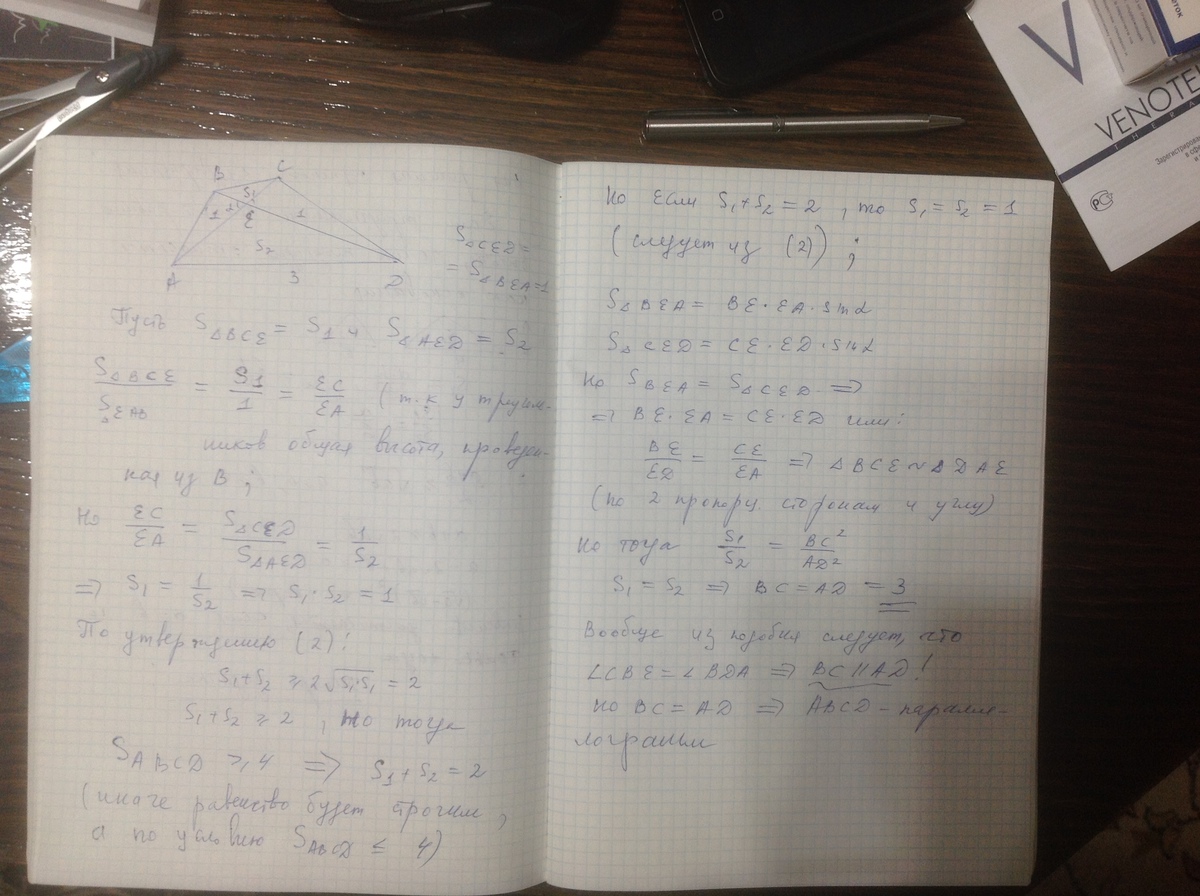 V
VENOTE
THERA
Зарегистрирова
в сф
и
РС
B
C
S₁
1
1
E
1
S₂
A
3
D
S△CED =
= S△BEA = 1
Пусть S△BCE = S1 и S△AED = S2
S△BCE / SEAB = S1 / 1 = EC / EA (т.к у треуголь-
ников общая высота, проведен-
ная из B ;
Но EC / EA = S△CED / S△AED = 1 / S2
=> S1 = 1 / S2 => S1 · S2 = 1
По утверждению (2) !
S1 + S2 ≥ 2√S1·S1 = 2
S1 + S2 ≥ 2 , но тогда
SABCD ≥ 4 => S1 + S2 = 2
(иначе равенство будет строгим ,
а по условию SABCD ≤ 4)
Но если S1 + S2 = 2 , то S1 = S2 = 1
(следует из (2)) ;
S△BEA = BE · EA · sinα
S△CED = CE · ED · sinα
Но SBEA = S△CED =>
=> BE · EA = CE · ED или :
BE / ED = CE / EA => △BCE ~ △DAE
(по 2 пропорц. сторонам и углу)
Но тогда S1 / S2 = BC² / AD²
S1 = S2 => BC = AD = 3
Вообще из подобия следует, что
∠CBE = ∠BDA => BC || AD !
Но BC = AD => ABCD - паралле-
лограмм